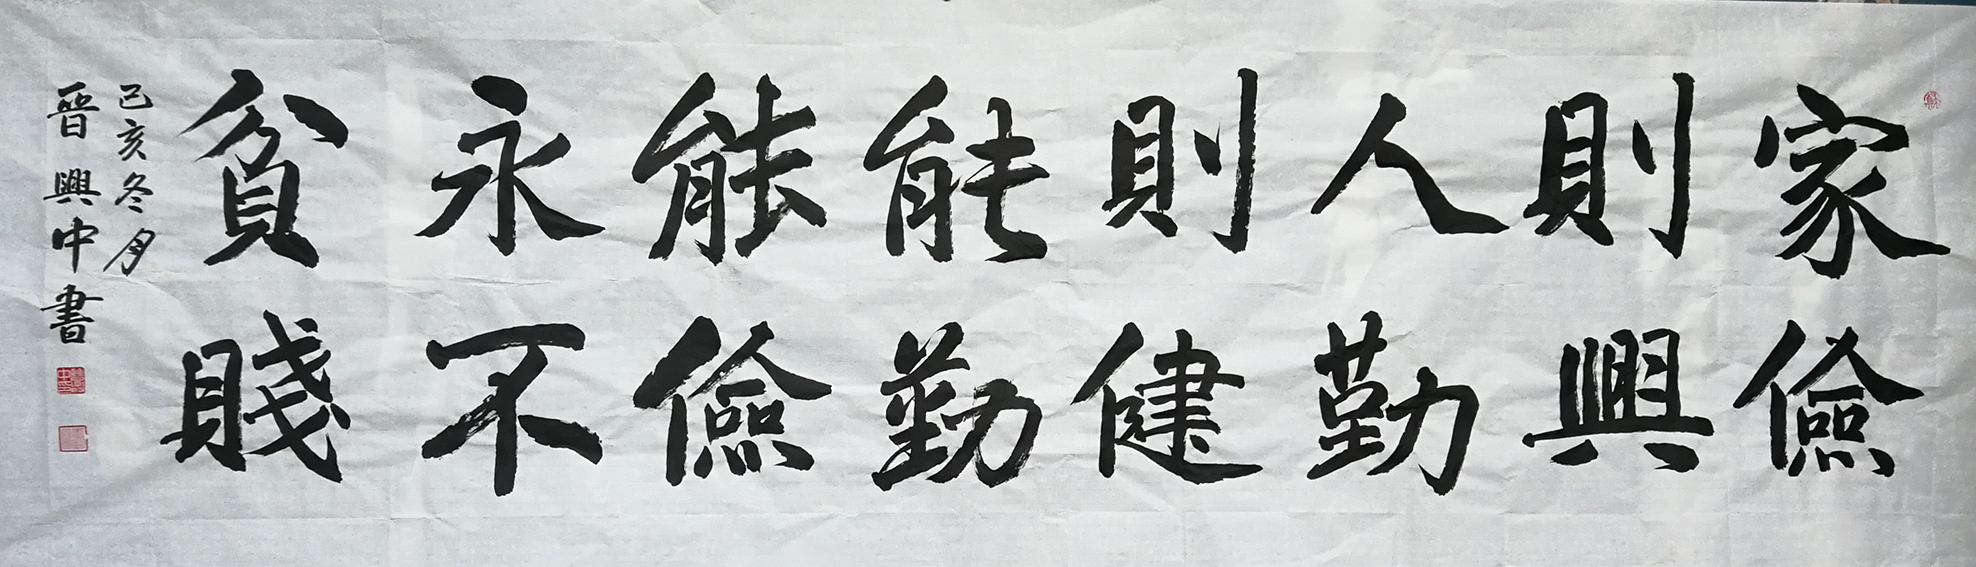 家儉
則興
人勤
則健
能勤
能儉
永不
貧賤
己亥冬月
晉興中書